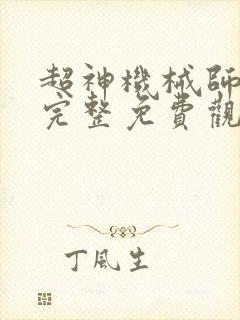 超神機械師
完整免費觀
丁風生